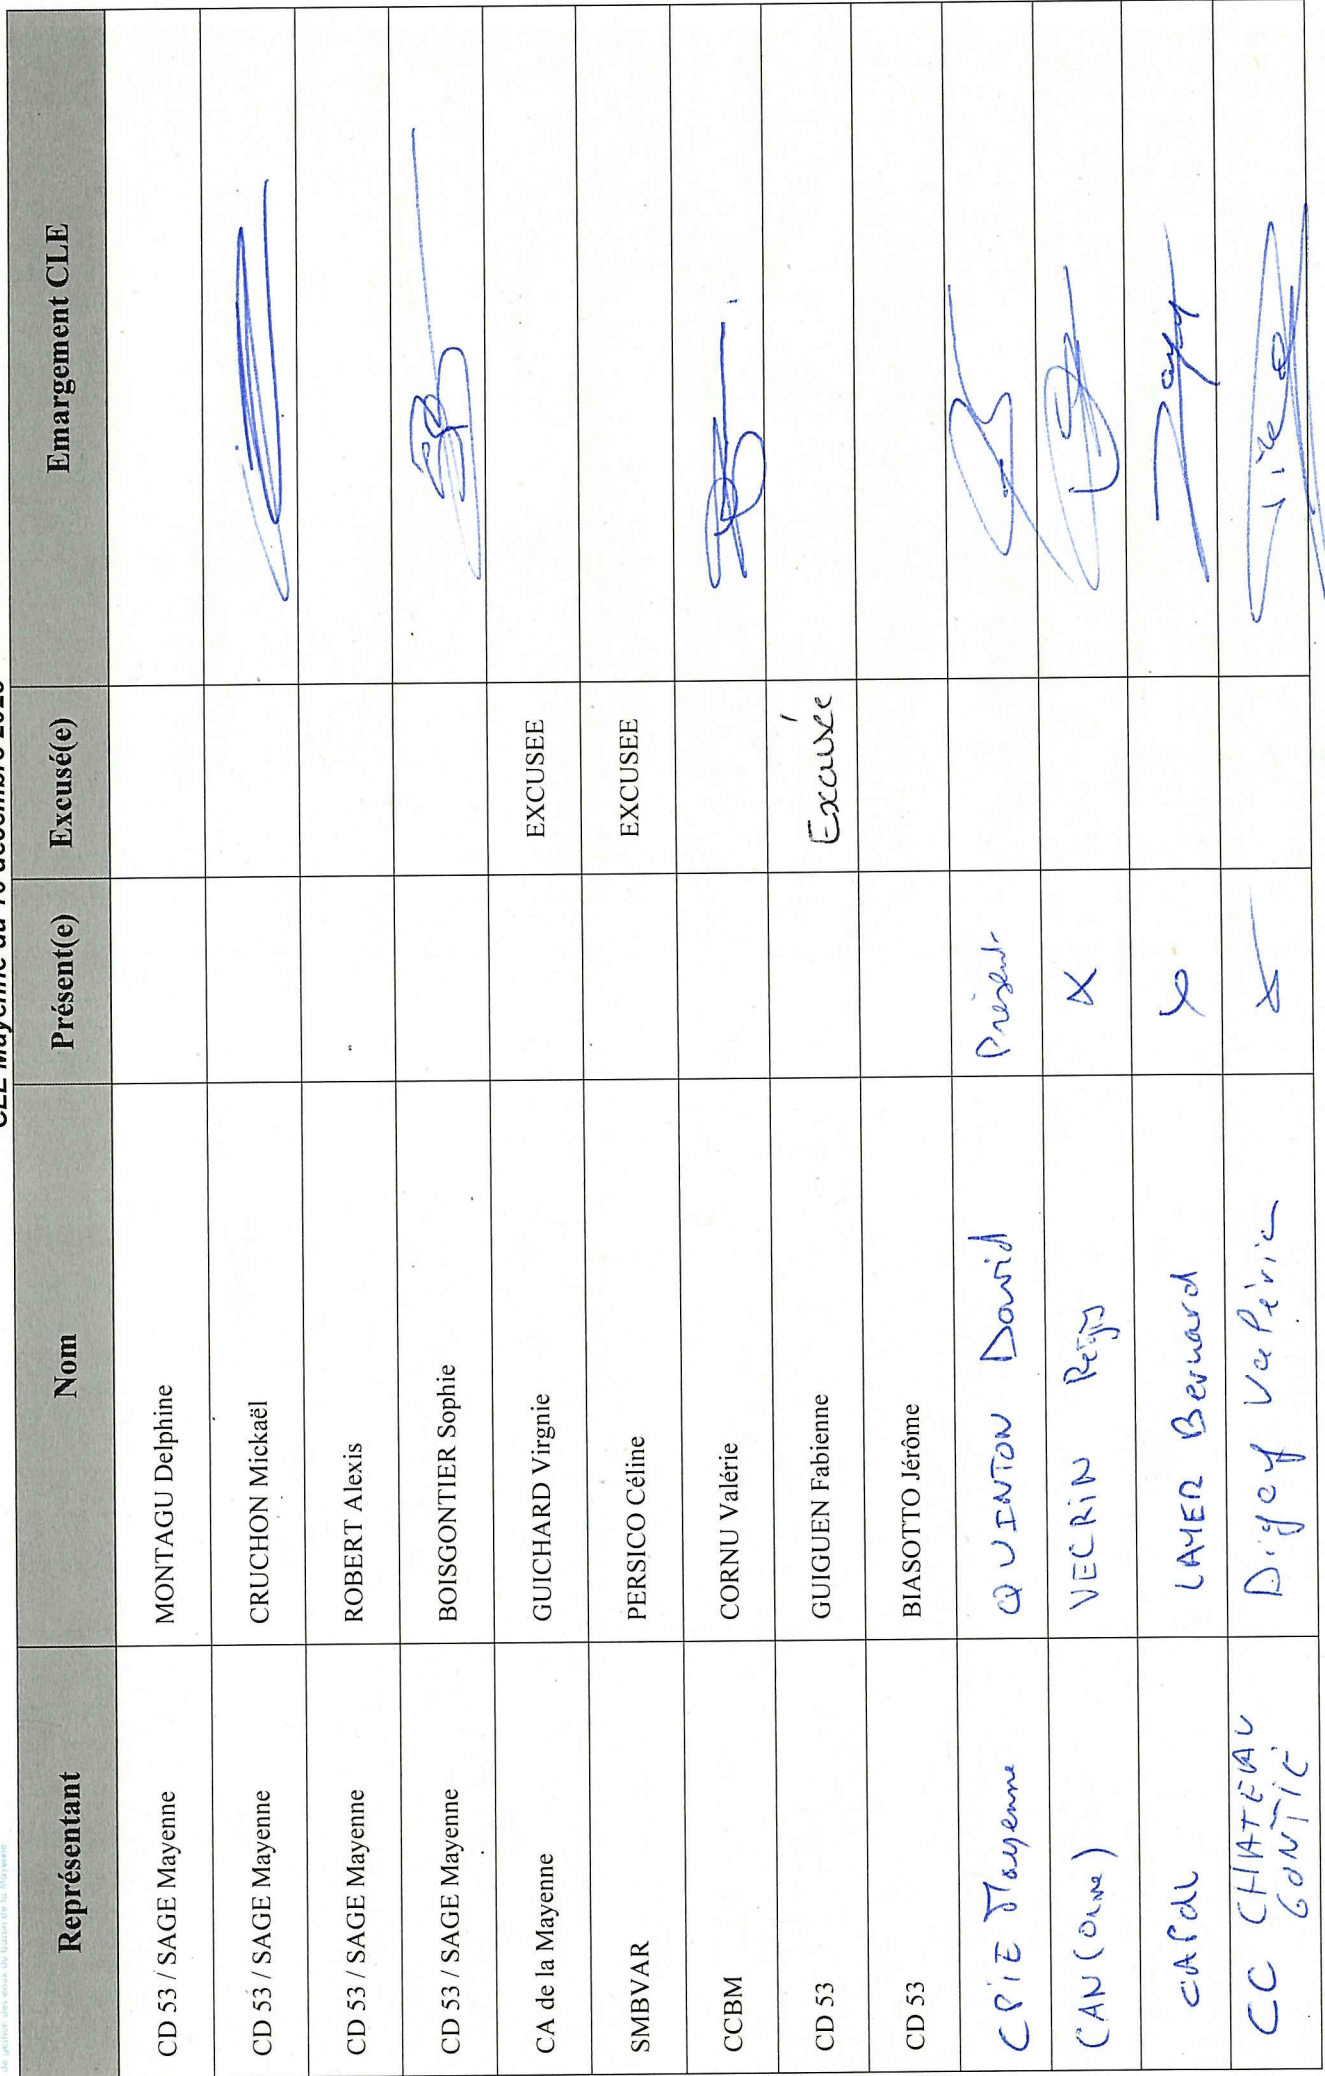 Représentant Nom Présent(e) Excusé(e) Emargement CLE
CD 53 / SAGE Mayenne MONTAGU Delphine
CD 53 / SAGE Mayenne CRUCHON Mickaël
CD 53 / SAGE Mayenne ROBERT Alexis
CD 53 / SAGE Mayenne BOISGONTIER Sophie
CA de la Mayenne GUICHARD Virgnie EXCUSEE
SMBVAR PERSICO Céline EXCUSEE
CCBM CORNU Valérie
CD 53 GUIGUEN Fabienne Excusée
CD 53 BIASOTTO Jérôme
CPIE Mayenne QUINTON David Présent
CAN (Orne) VECRIN Régis X
CAPdL LAYER Bernard X
CC CHATEAU
GONTIE Valérie X